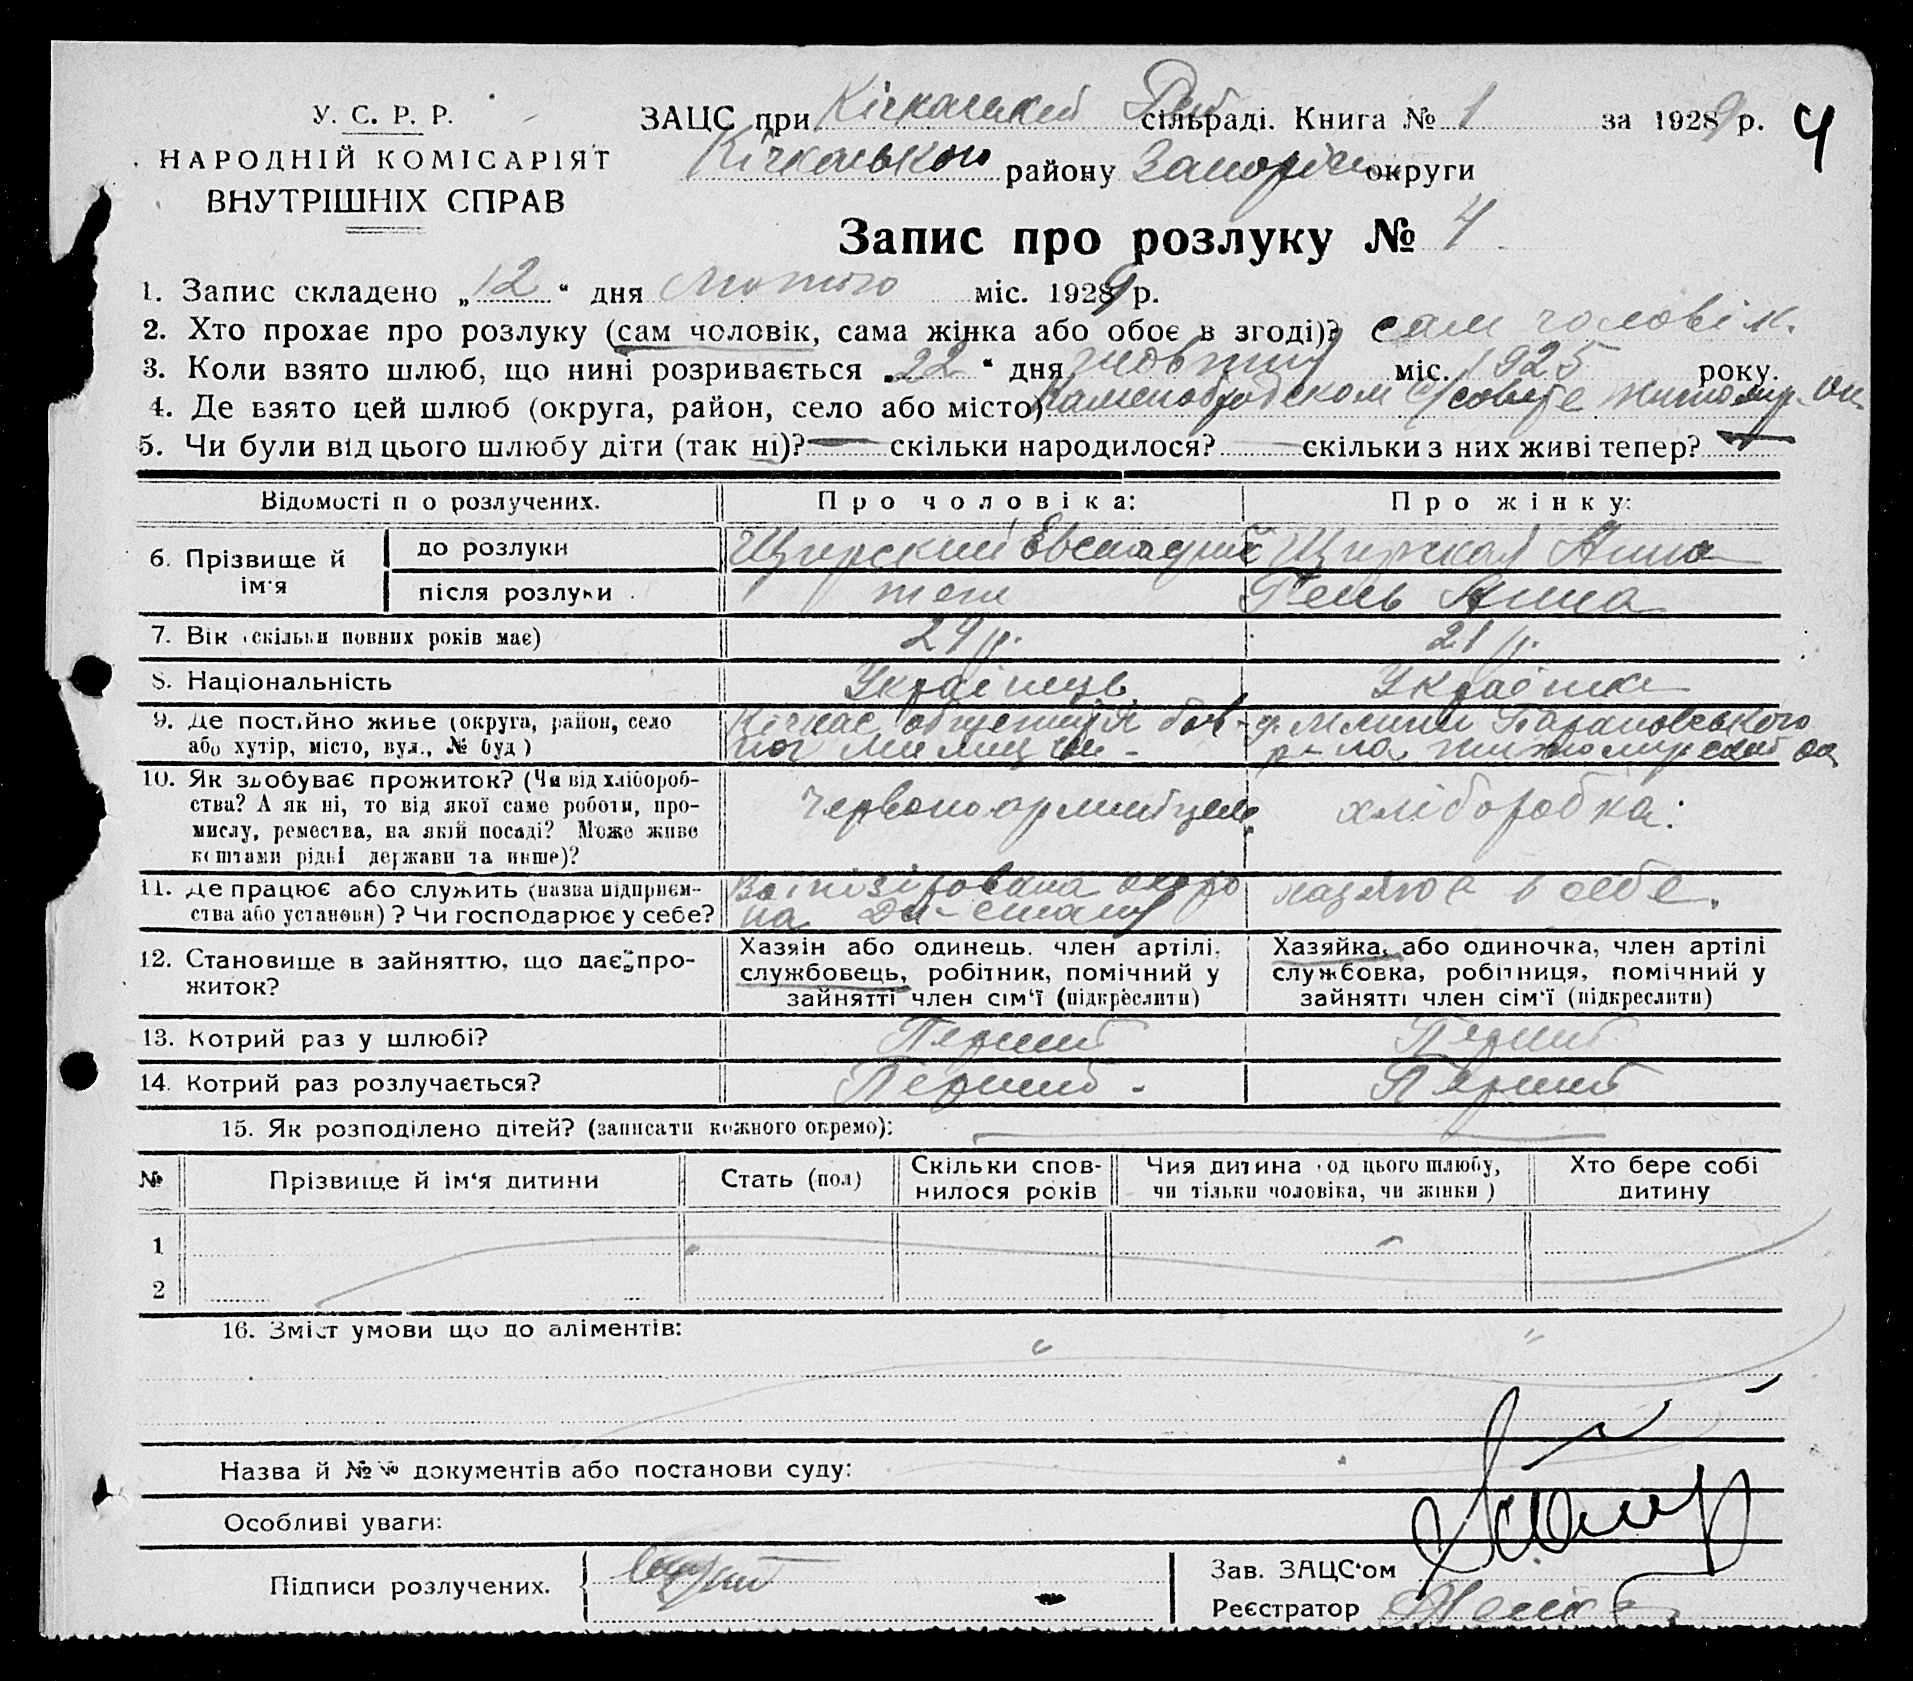 У. С. Р. Р.
НАРОДНІЙ КОМІСАРІЯТ
ВНУТРІШНІХ СПРАВ
ЗАЦС при Кічкаський Рай сільраді. Книга № 1 за 1929 р. 4
Кічкаського району Запоріж. округи
Запис про розлуку № 4
1. Запис складено „12“ дня лютого міс. 1929 р.
2. Хто прохає про розлуку (сам чоловік, сама жінка або обоє в згоді)? сам чоловік.
3. Коли взято шлюб, що нині розривається „22“ дня жовтня міс. 1925 року.
4. Де взято цей шлюб (округа, район, село або місто) Каменобродском с/совете Житомир. ок.
5. Чи були від цього шлюбу діти (так ні)? — скільки народилося? — скільки з них живі тепер? —
Відомості п о розлучених. Про чоловіка: Про жінку:
6. Прізвище й ім'я до розлуки Щирский Щирская Анна
після розлуки теж Пень Анна
7. Вік (скільки повних років має) 24 р. 21 р.
8. Національність Українець Українка
9. Де постійно живе (округа, район, село або хутір, місто, вул., № буд) Кічкас Барановського р-на Житомирской ок
10. Як здобуває прожиток? (Чи від хлібороб-
ства? А як ні, то від якої саме роботи, про-
мислу, ремества, на якій посаді? Може живе
коштами рідні держави та инше)? червоноармиець хліборобка.
11. Де працює або служить (назва підприєм-
ства або установи)? Чи господарює у себе? в себе.
12. Становище в зайняттю, що дає про-
житок?
Хазяін або одинець. член артілі,
службовець, робітник, помічний у
зайнятті член сім'ї (підкреслити)
Хазяйка, або одиночка, член артілі
службовка, робітниця, помічний у
зайнятті член сім'ї (підкреслити)
13. Котрий раз у шлюбі? Перший Перший
14. Котрий раз розлучається? Перший - Перший
15. Як розподілено дітей? (записати кожного окремо):
№ Прізвище й ім'я дитини Стать (пол) Скільки спов-
нилося років Чия дитина (од цього шлюбу,
чи тільки чоловіка, чи жінки) Хто бере собі
дитину
1
2
16. Зміст умови що до аліментів:
Назва й №№ документів або постанови суду:
Особливі уваги:
Підписи розлучених.
Зав. ЗАЦС'ом
Реєстратор